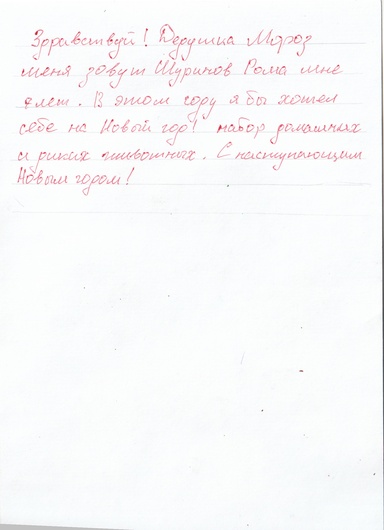 Здравствуй! Дедушка Мороз
меня зовут Шуринов Рома мне
лет. В этом году я бы хотел
себе на Новый год набор домашних
и диких животных. С наступающим
Новым годом!